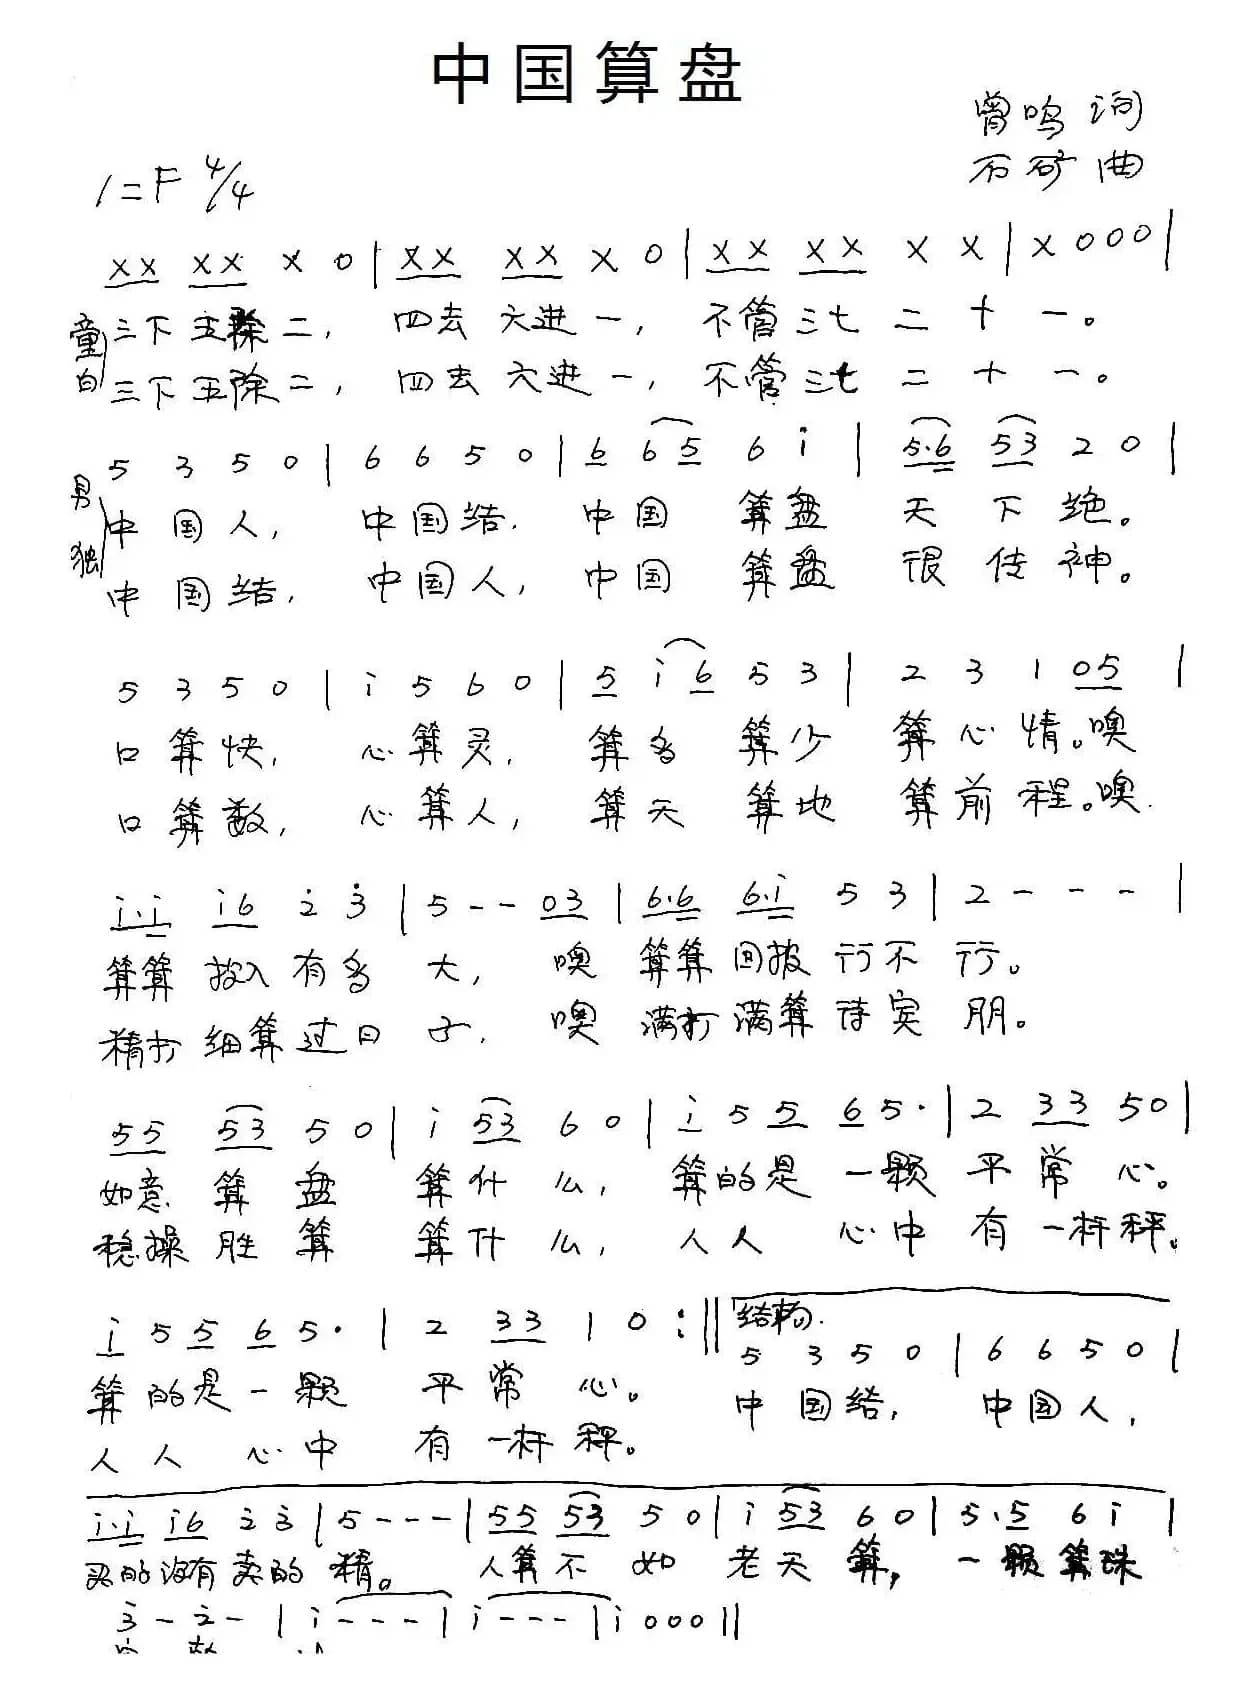 中国算盘
曾鸣 词
石矿 曲
1=F 4/4
XX XX X 0 | XX XX X 0 | XX XX X X | X 0 0 0 |
童白
三下五除二， 四去六进一， 不管三七二十一。
三下五除二， 四去六进一， 不管三七二十一。
5 3 5 0 | 6 6 5 0 | 6 6 5 6 i | 5·6 53 2 0 |
男独
中国人， 中国结. 中国 算盘 天下绝。
中国结， 中国人， 中国 算盘 很传神。
5 3 5 0 | i 5 6 0 | 5 i 6 5 3 | 2 3 1 05 |
口算快， 心算灵， 算多 算少 算心情。噢
口算数， 心算人， 算天 算地 算前程。噢.
i·i i6 2̇ 3̇ | 5 - - 03 | 6·6 6·i 5 3 | 2 - - - |
算算 投入有多 大， 噢 算算回报行不行。
精打细算过日 子， 噢 满打满算待宾朋。
55 53 5 0 | i 53 6 0 | i 5 5 6 5· | 2 33 5 0 |
如意 算 盘 算什么， 算的是一颗 平常心。
稳操胜算 算什么， 人人 心中 有一杆秤。
i 5 5 6 5· | 2 33 1 0 :||
结构.
5 3 5 0 | 6 6 5 0 |
算的是一颗 平常心。
中国结， 中国人，
人人 心中 有一杆秤。
i·i i6 2̇ 3̇ | 5 - - - | 55 53 5 0 | i 53 6 0 | 5·5 6 i |
买的没有卖的精。 人算不如 老天算， 一颗算珠
3̇ - 2̇ - | i - - - | i - - - | i 0 0 0 ||